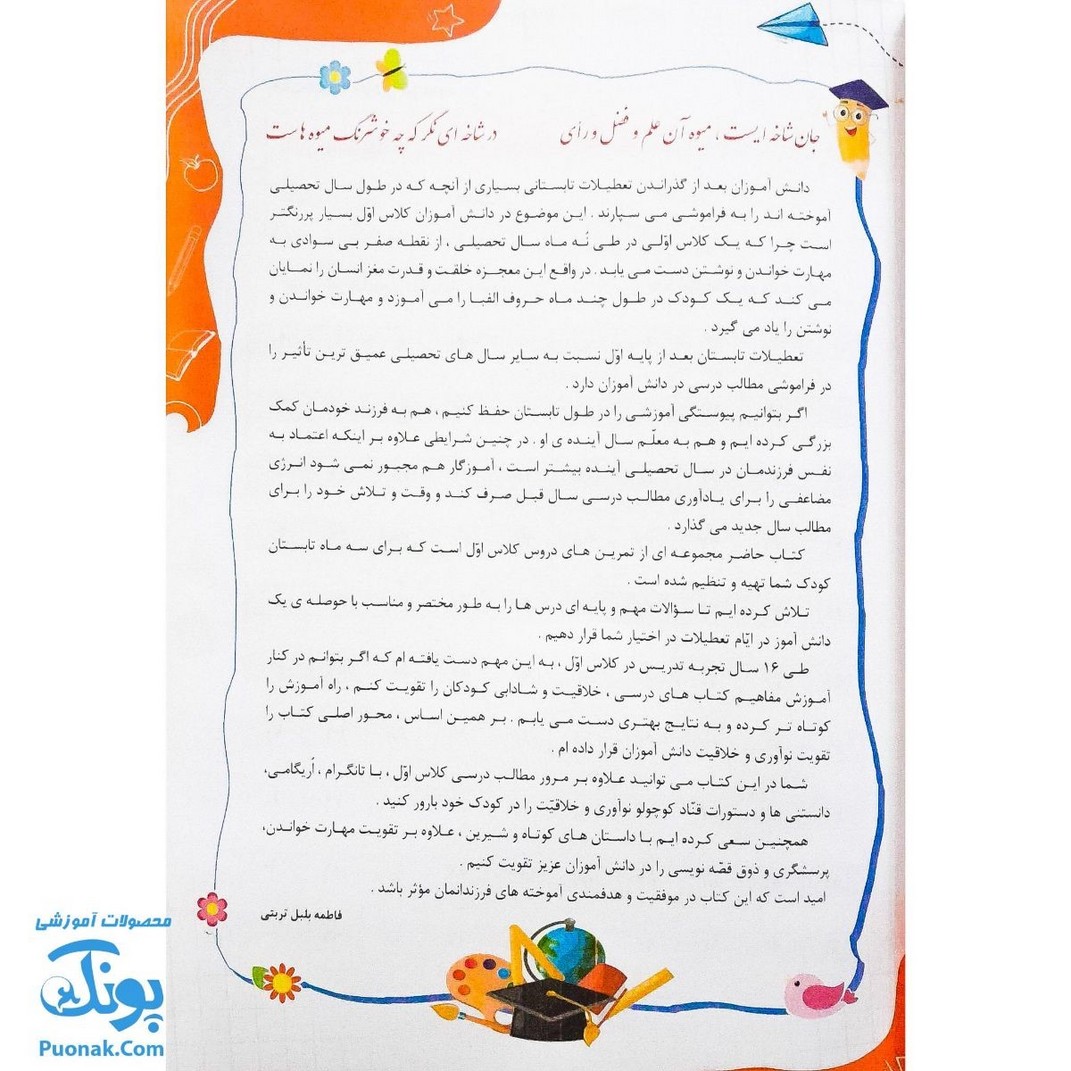 جان شاخه ایست ، میوه آن علم و فضل و رأی در شاخه ای نگر که چه خوشرنگ میوه هاست
دانش آموزان بعد از گذراندن تعطیلات تابستانی بسیاری از آنچه که در طول سال تحصیلی
آموخته اند را به فراموشی می سپارند . این موضوع در دانش آموزان کلاس اوّل بسیار پررنگتر
است چرا که یک کلاس اوّلی در طی نُه ماه سال تحصیلی ، از نقطه صفر بی سوادی به
مهارت خواندن و نوشتن دست می یابد . در واقع این معجزه خلقت و قدرت مغز انسان را نمایان
می کند که یک کودک در طول چند ماه حروف الفبا را می آموزد و مهارت خواندن و
نوشتن را یاد می گیرد .
تعطیلات تابستان بعد از پایه اوّل نسبت به سایر سال های تحصیلی عمیق ترین تأثیر را
در فراموشی مطالب درسی در دانش آموزان دارد .
اگر بتوانیم پیوستگی آموزشی را در طول تابستان حفظ کنیم ، هم به فرزند خودمان کمک
بزرگی کرده ایم و هم به معلّم سال آینده ی او . در چنین شرایطی علاوه بر اینکه اعتماد به
نفس فرزندمان در سال تحصیلی آینده بیشتر است ، آموزگار هم مجبور نمی شود انرژی
مضاعفی را برای یادآوری مطالب درسی سال قبل صرف کند و وقت و تلاش خود را برای
مطالب سال جدید می گذارد .
کتاب حاضر مجموعه ای از تمرین های دروس کلاس اوّل است که برای سه ماه تابستان
کودک شما تهیه و تنظیم شده است .
تلاش کرده ایم تا سؤالات مهم و پایه ای درس ها را به طور مختصر و مناسب با حوصله ی یک
دانش آموز در ایّام تعطیلات در اختیار شما قرار دهیم .
طی ۱۶ سال تجربه تدریس در کلاس اوّل ، به این مهم دست یافته ام که اگر بتوانم در کنار
آموزش مفاهیم کتاب های درسی ، خلاقیت و شادابی کودکان را تقویت کنم ، راه آموزش را
کوتاه تر کرده و به نتایج بهتری دست می یابم . بر همین اساس ، محور اصلی کتاب را
تقویت نوآوری و خلاقیت دانش آموزان قرار داده ام .
شما در این کتاب می توانید علاوه بر مرور مطالب درسی کلاس اوّل ، با تانگرام ، اُریگامی،
دانستنی ها و دستورات قنّاد کوچولو نوآوری و خلاقیّت را در کودک خود بارور کنید .
همچنین سعی کرده ایم با داستان های کوتاه و شیرین ، علاوه بر تقویت مهارت خواندن،
پرسشگری و ذوق قصّه نویسی را در دانش آموزان عزیز تقویت کنیم .
امید است که این کتاب در موفقیت و هدفمندی آموخته های فرزندانمان مؤثر باشد .
فاطمه بلبل تربتی
محصولات آموزشی
پونک
Puonak.Com